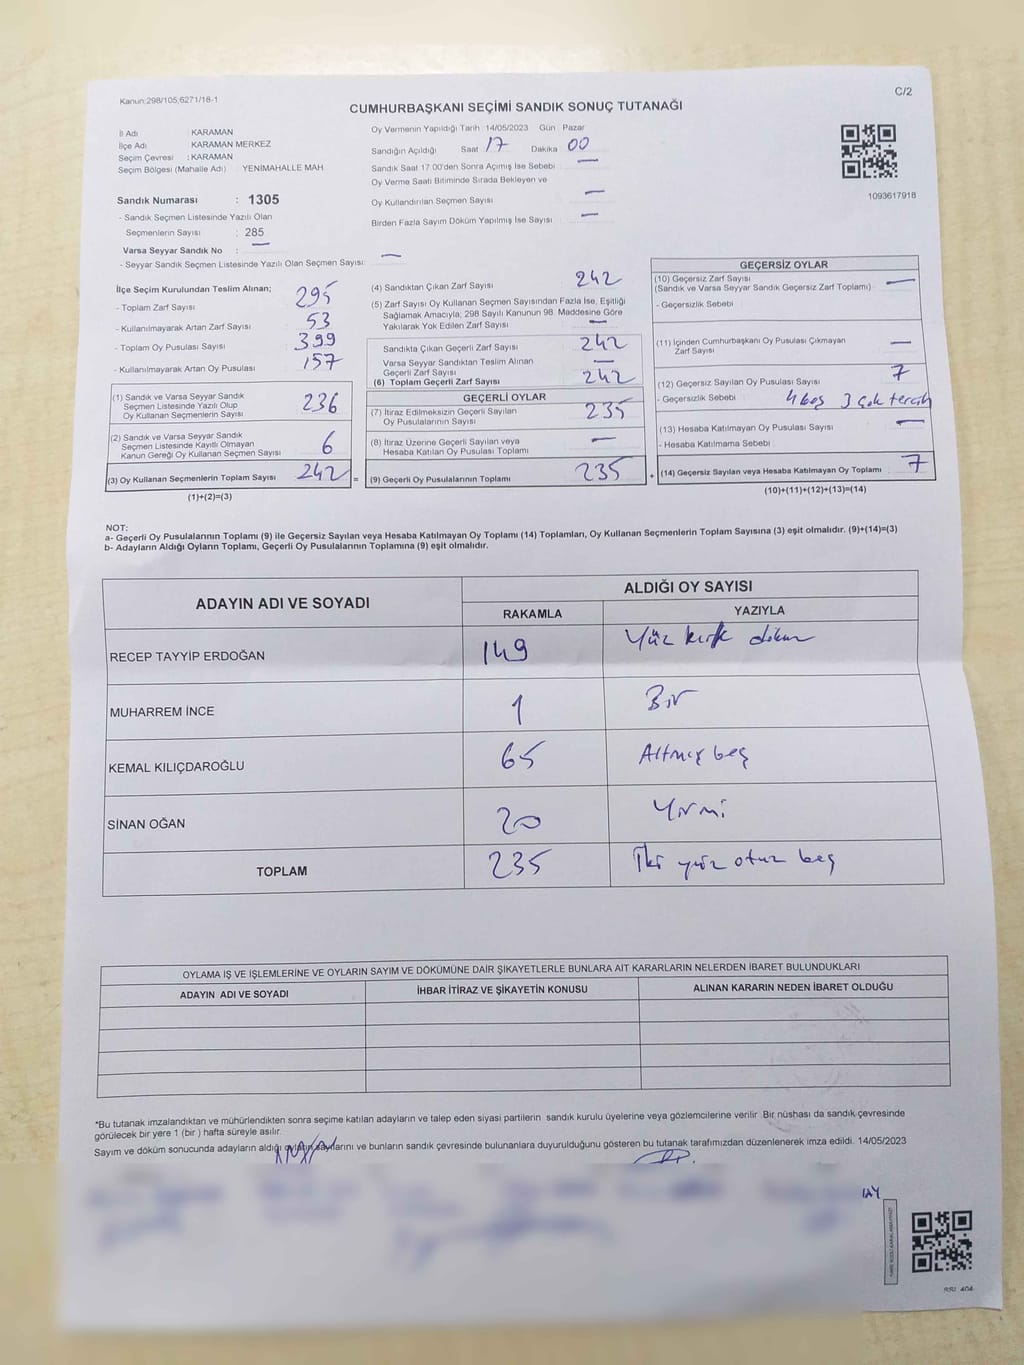 Kanun:298/105;6271/18-1
C/2
CUMHURBAŞKANI SEÇİMİ SANDIK SONUÇ TUTANAĞI
İl Adı : KARAMAN
İlçe Adı : KARAMAN MERKEZ
Seçim Çevresi : KARAMAN
Seçim Bölgesi (Mahalle Adı) YENİMAHALLE MAH.
Sandık Numarası : 1305
- Sandık Seçmen Listesinde Yazılı Olan
Seçmenlerin Sayısı : 285
Varsa Seyyar Sandık No : —
- Seyyar Sandık Seçmen Listesinde Yazılı Olan Seçmen Sayısı: —
Oy Vermenin Yapıldığı Tarih 14/05/2023 Gün Pazar
Sandığın Açıldığı Saat 17 Dakika 00
Sandık Saat 17:00'den Sonra Açılmış İse Sebebi : —
Oy Verme Saati Bitiminde Sırada Bekleyen ve
Oy Kullandırılan Seçmen Sayısı : —
Birden Fazla Sayım Döküm Yapılmış İse Sayısı : —
1093617918
İlçe Seçim Kurulundan Teslim Alınan;
- Toplam Zarf Sayısı : 295
- Kullanılmayarak Artan Zarf Sayısı : 53
- Toplam Oy Pusulası Sayısı : 399
- Kullanılmayarak Artan Oy Pusulası : 157
(1) Sandık ve Varsa Seyyar Sandık
Seçmen Listesinde Yazılı Olup
Oy Kullanan Seçmenlerin Sayısı 236
(2) Sandık ve Varsa Seyyar Sandık
Seçmen Listesinde Kayıtlı Olmayan
Kanun Gereği Oy Kullanan Seçmen Sayısı 6
(3) Oy Kullanan Seçmenlerin Toplam Sayısı 242 =
(1)+(2)=(3)
(4) Sandıktan Çıkan Zarf Sayısı : 242
(5) Zarf Sayısı Oy Kullanan Seçmen Sayısından Fazla İse, Eşitliği
Sağlamak Amacıyla; 298 Sayılı Kanunun 98. Maddesine Göre
Yakılarak Yok Edilen Zarf Sayısı : —
Sandıkta Çıkan Geçerli Zarf Sayısı : 242
Varsa Seyyar Sandıktan Teslim Alınan
Geçerli Zarf Sayısı : —
(6) Toplam Geçerli Zarf Sayısı : 242
GEÇERLİ OYLAR
(7) İtiraz Edilmeksizin Geçerli Sayılan
Oy Pusulalarının Sayısı : 235
(8) İtiraz Üzerine Geçerli Sayılan veya
Hesaba Katılan Oy Pusulası Toplamı : —
(9) Geçerli Oy Pusulalarının Toplamı 235 +
GEÇERSİZ OYLAR
(10) Geçersiz Zarf Sayısı
(Sandık ve Varsa Seyyar Sandık Geçersiz Zarf Toplamı) : —
- Geçersizlik Sebebi :
(11) İçinden Cumhurbaşkanı Oy Pusulası Çıkmayan
Zarf Sayısı : —
(12) Geçersiz Sayılan Oy Pusulası Sayısı : 7
- Geçersizlik Sebebi : 4 boş 3 çok tercih
(13) Hesaba Katılmayan Oy Pusulası Sayısı : —
- Hesaba Katılmama Sebebi :
(14) Geçersiz Sayılan veya Hesaba Katılmayan Oy Toplamı : 7
(10)+(11)+(12)+(13)=(14)
NOT:
a- Geçerli Oy Pusulalarının Toplamı (9) ile Geçersiz Sayılan veya Hesaba Katılmayan Oy Toplamı (14) Toplamları, Oy Kullanan Seçmenlerin Toplam Sayısına (3) eşit olmalıdır. (9)+(14)=(3)
b- Adayların Aldığı Oyların Toplamı, Geçerli Oy Pusulalarının Toplamına (9) eşit olmalıdır.
ADAYIN ADI VE SOYADI
ALDIĞI OY SAYISI
RAKAMLA YAZIYLA
RECEP TAYYİP ERDOĞAN 149 Yüz kırk dokuz
MUHARREM İNCE 1 Bir
KEMAL KILIÇDAROĞLU 65 Altmış beş
SİNAN OĞAN 20 Yirmi
TOPLAM 235 İki yüz otuz beş
OYLAMA İŞ VE İŞLEMLERİNE VE OYLARIN SAYIM VE DÖKÜMÜNE DAİR ŞİKAYETLERLE BUNLARA AİT KARARLARIN NELERDEN İBARET BULUNDUKLARI
ADAYIN ADI VE SOYADI İHBAR İTİRAZ VE ŞİKAYETİN KONUSU ALINAN KARARIN NEDEN İBARET OLDUĞU
*Bu tutanak imzalandıktan ve mühürlendikten sonra seçime katılan adayların ve talep eden siyasi partilerin sandık kurulu üyelerine veya gözlemcilerine verilir .Bir nüshası da sandık çevresinde
görülecek bir yere 1 (bir ) hafta süreyle asılır.
Sayım ve döküm sonucunda adayların aldığı oyların sayılarını ve bunların sandık çevresinde bulunanlara duyurulduğunu gösteren bu tutanak tarafımızdan düzenlenerek imza edildi. 14/05/2023